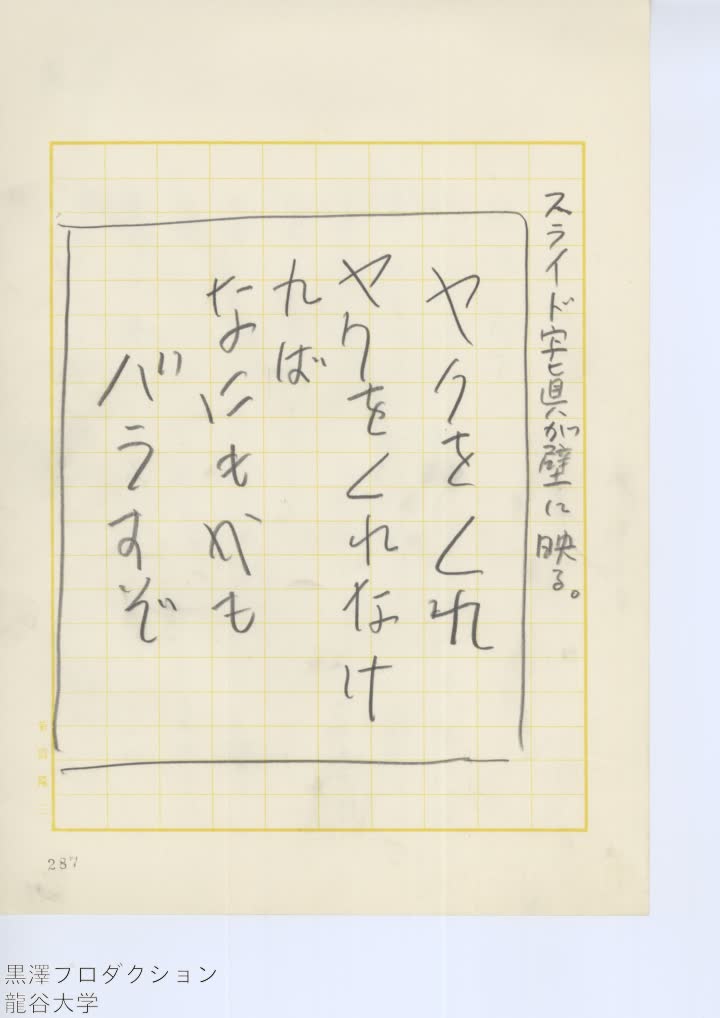 スライド写真が壁に映る。
ヤクをくれ
ヤクをくれなけ
れば
なにもかも
バラすぞ
287
黒澤プロダクション
龍谷大学